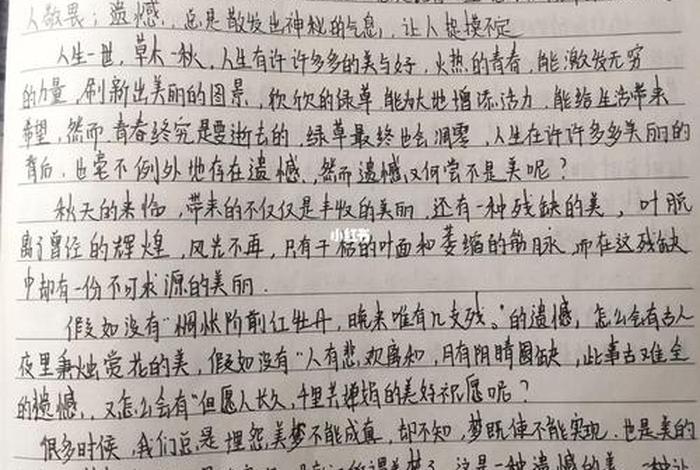 人敬畏；遗憾，总是散发出神秘的气息，让人捉摸不定
人生一世，草木一秋，人生有许许多多的美与好，火热的青春，能激发无穷
的力量，刷新出美丽的图景，欣欣的绿草能为大地增添活力，能给生活带来
希望，然而青春终究是要逝去的，绿草最终也会凋零，人生在许许多多美丽的
背后，也毫不例外地存在遗憾，然而遗憾又何尝不是美呢？
秋天的来临，带来的不仅仅是丰收的美丽，还有一种残缺的美，叶脱
离了曾经的辉煌，风光不再，只有干枯的叶面和萎缩的筋脉，而在这残缺
小红书
中却有一份不可求源的美丽.
假如没有“惆怅阶前红牡丹，晚来唯有几支残。”的遗憾，怎么会有古人
夜里秉烛赏花的美，假如没有“人有悲欢离和，月有阴晴圆缺，此事古难全
的遗憾，又怎么会有“但愿人长久，千里共婵娟的美好祝愿呢？
很多时候，我们总是埋怨美梦不能成真，却不知，梦既使不能实现，也是美的
这是一种遗憾的美